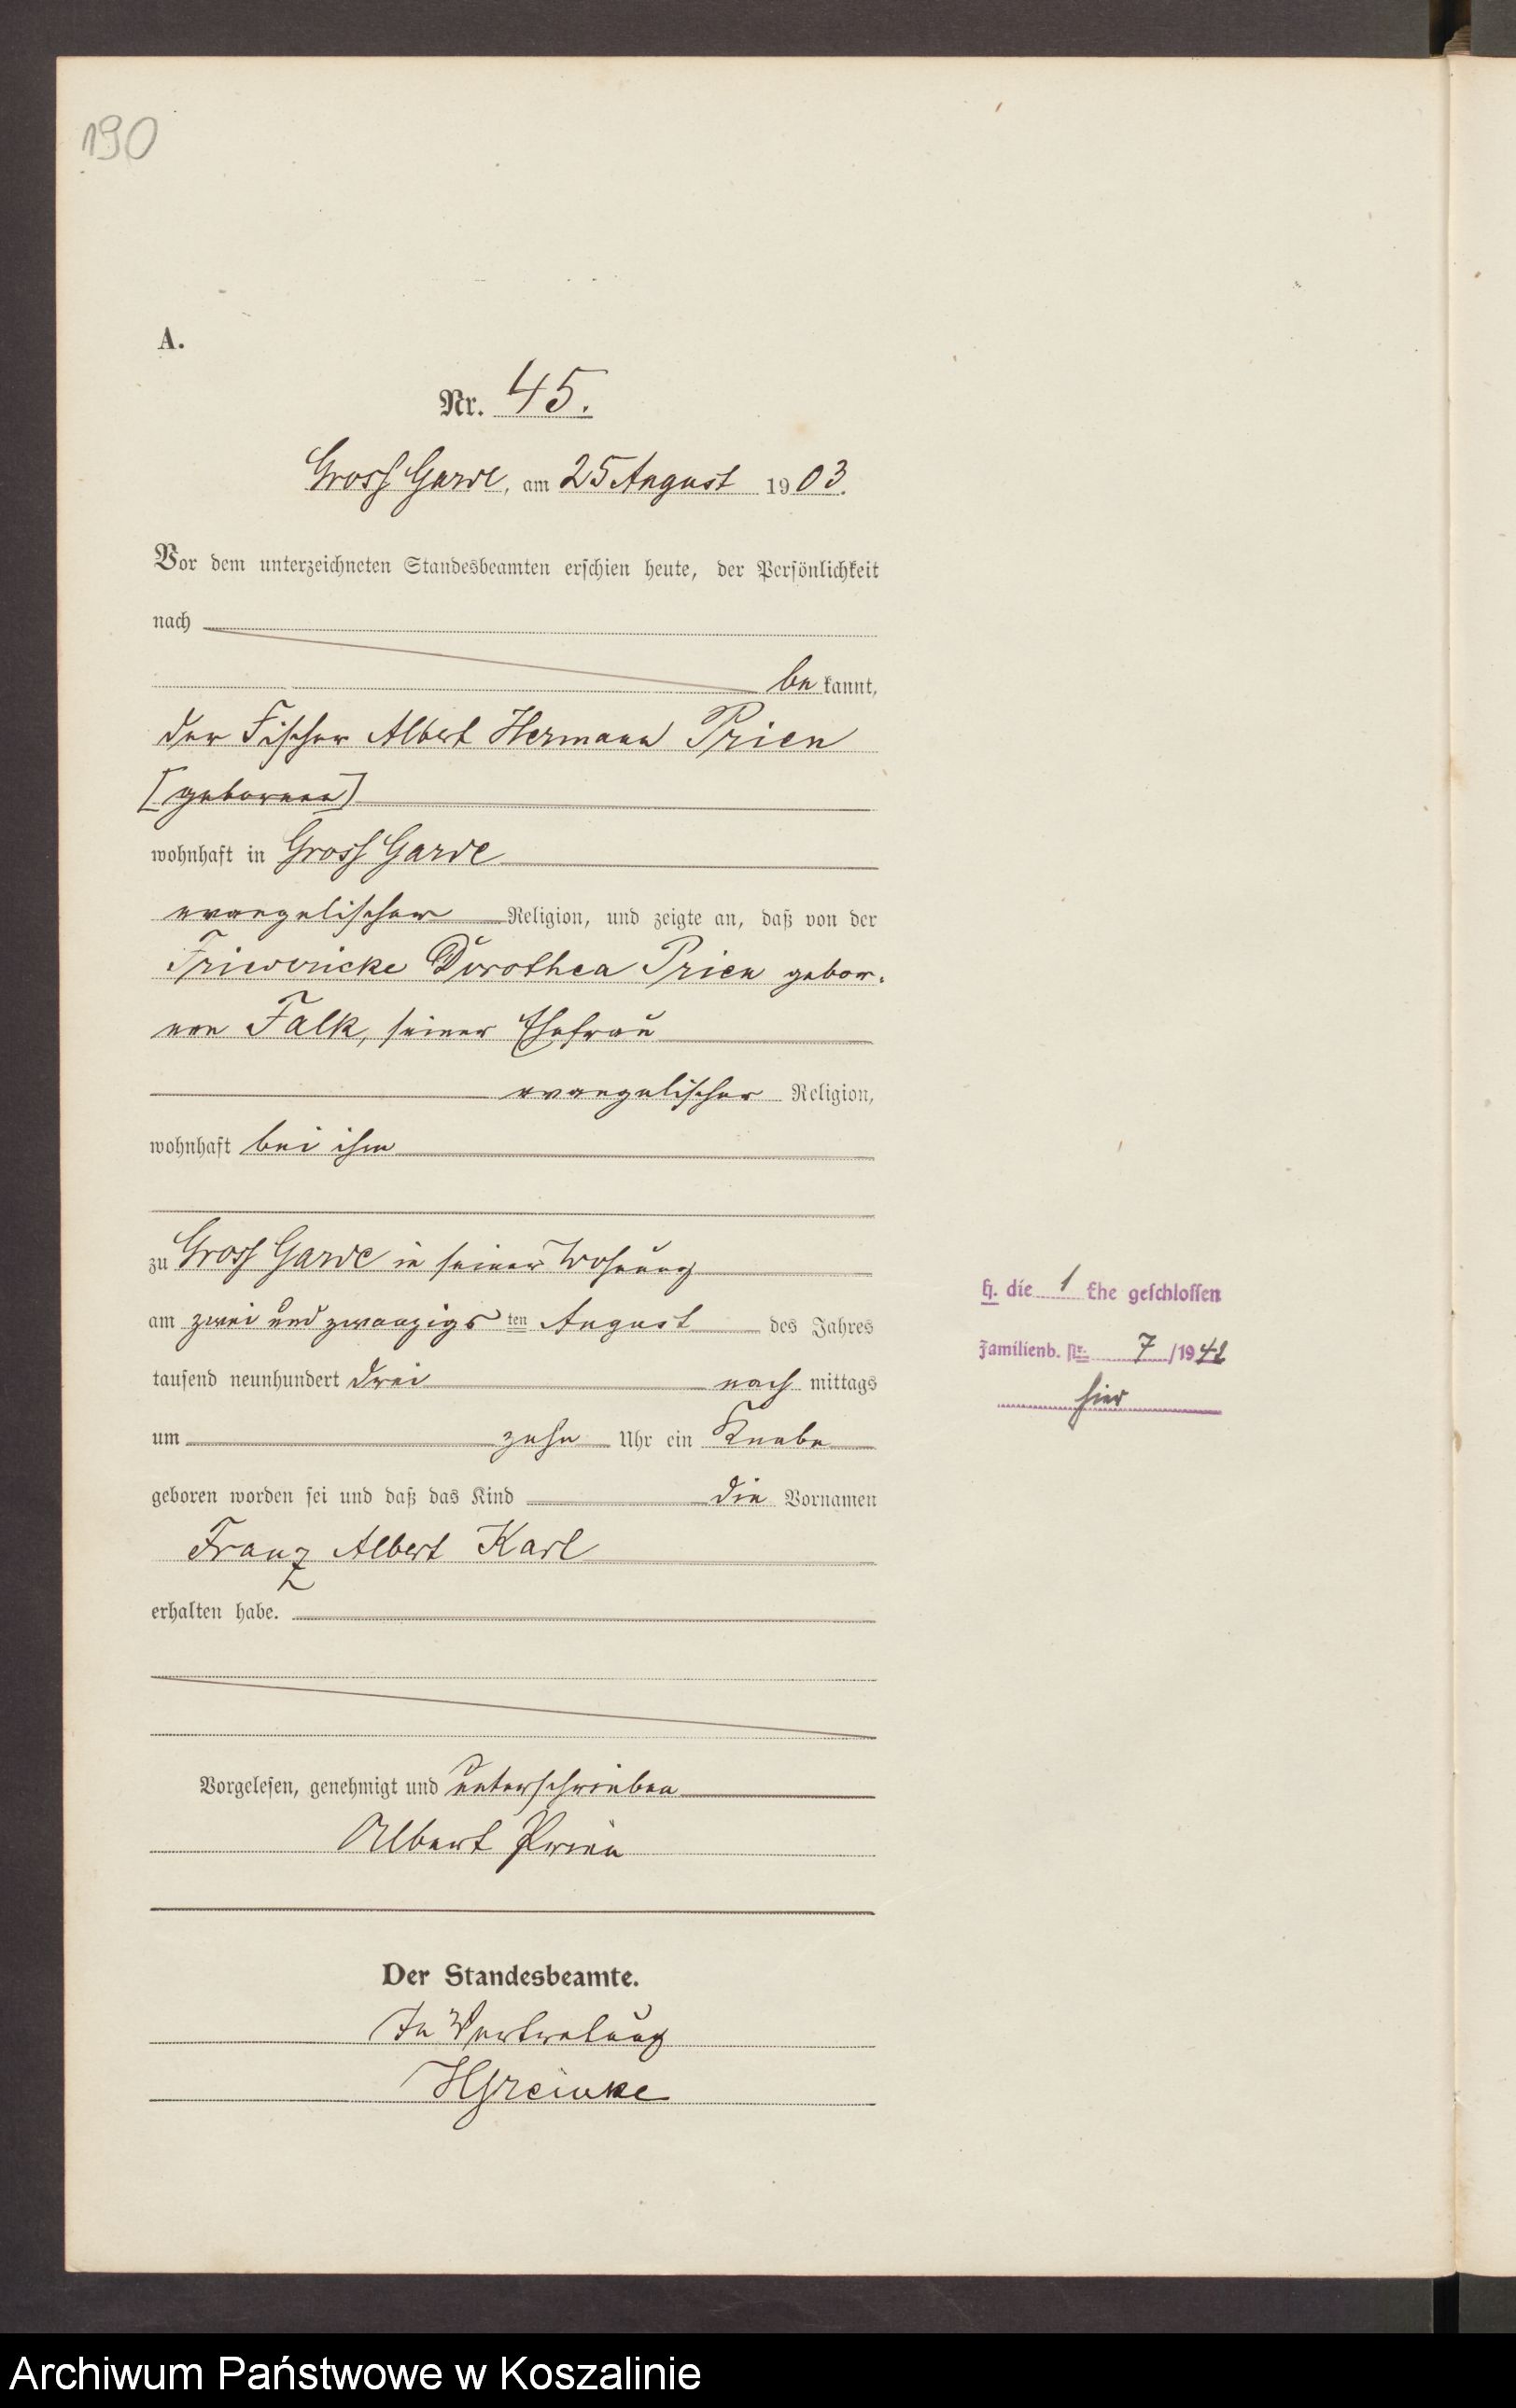 190
A.
Nr. 45.
Gross Garde, am 25 August 1903.
Vor dem unterzeichneten Standesbeamten erschien heute, der Persönlichkeit
nach
be kannt,
der Fischer Albert Hermann Prien
[geboren]
wohnhaft in Gross Garde
evangelischer Religion, und zeigte an, daß von der
Friedericke Dorothea Prien gebor-
nen Falk, seiner Ehefrau
evangelischer Religion,
wohnhaft bei ihm
zu Gross Garde in seiner Wohnung
am zwei und zwanzigsten August des Jahres
tausend neunhundert drei nach mittags
um zehn Uhr ein Knabe
geboren worden sei und daß das Kind die Vornamen
Franz Albert Karl
erhalten habe.
Vorgelesen, genehmigt und unterschrieben
Albert Prien
Der Standesbeamte.
In Vertretung
H. die 1 Ehe geschlossen
Familienb. Nr. 7/1942
hier
Archiwum Państwowe w Koszalinie